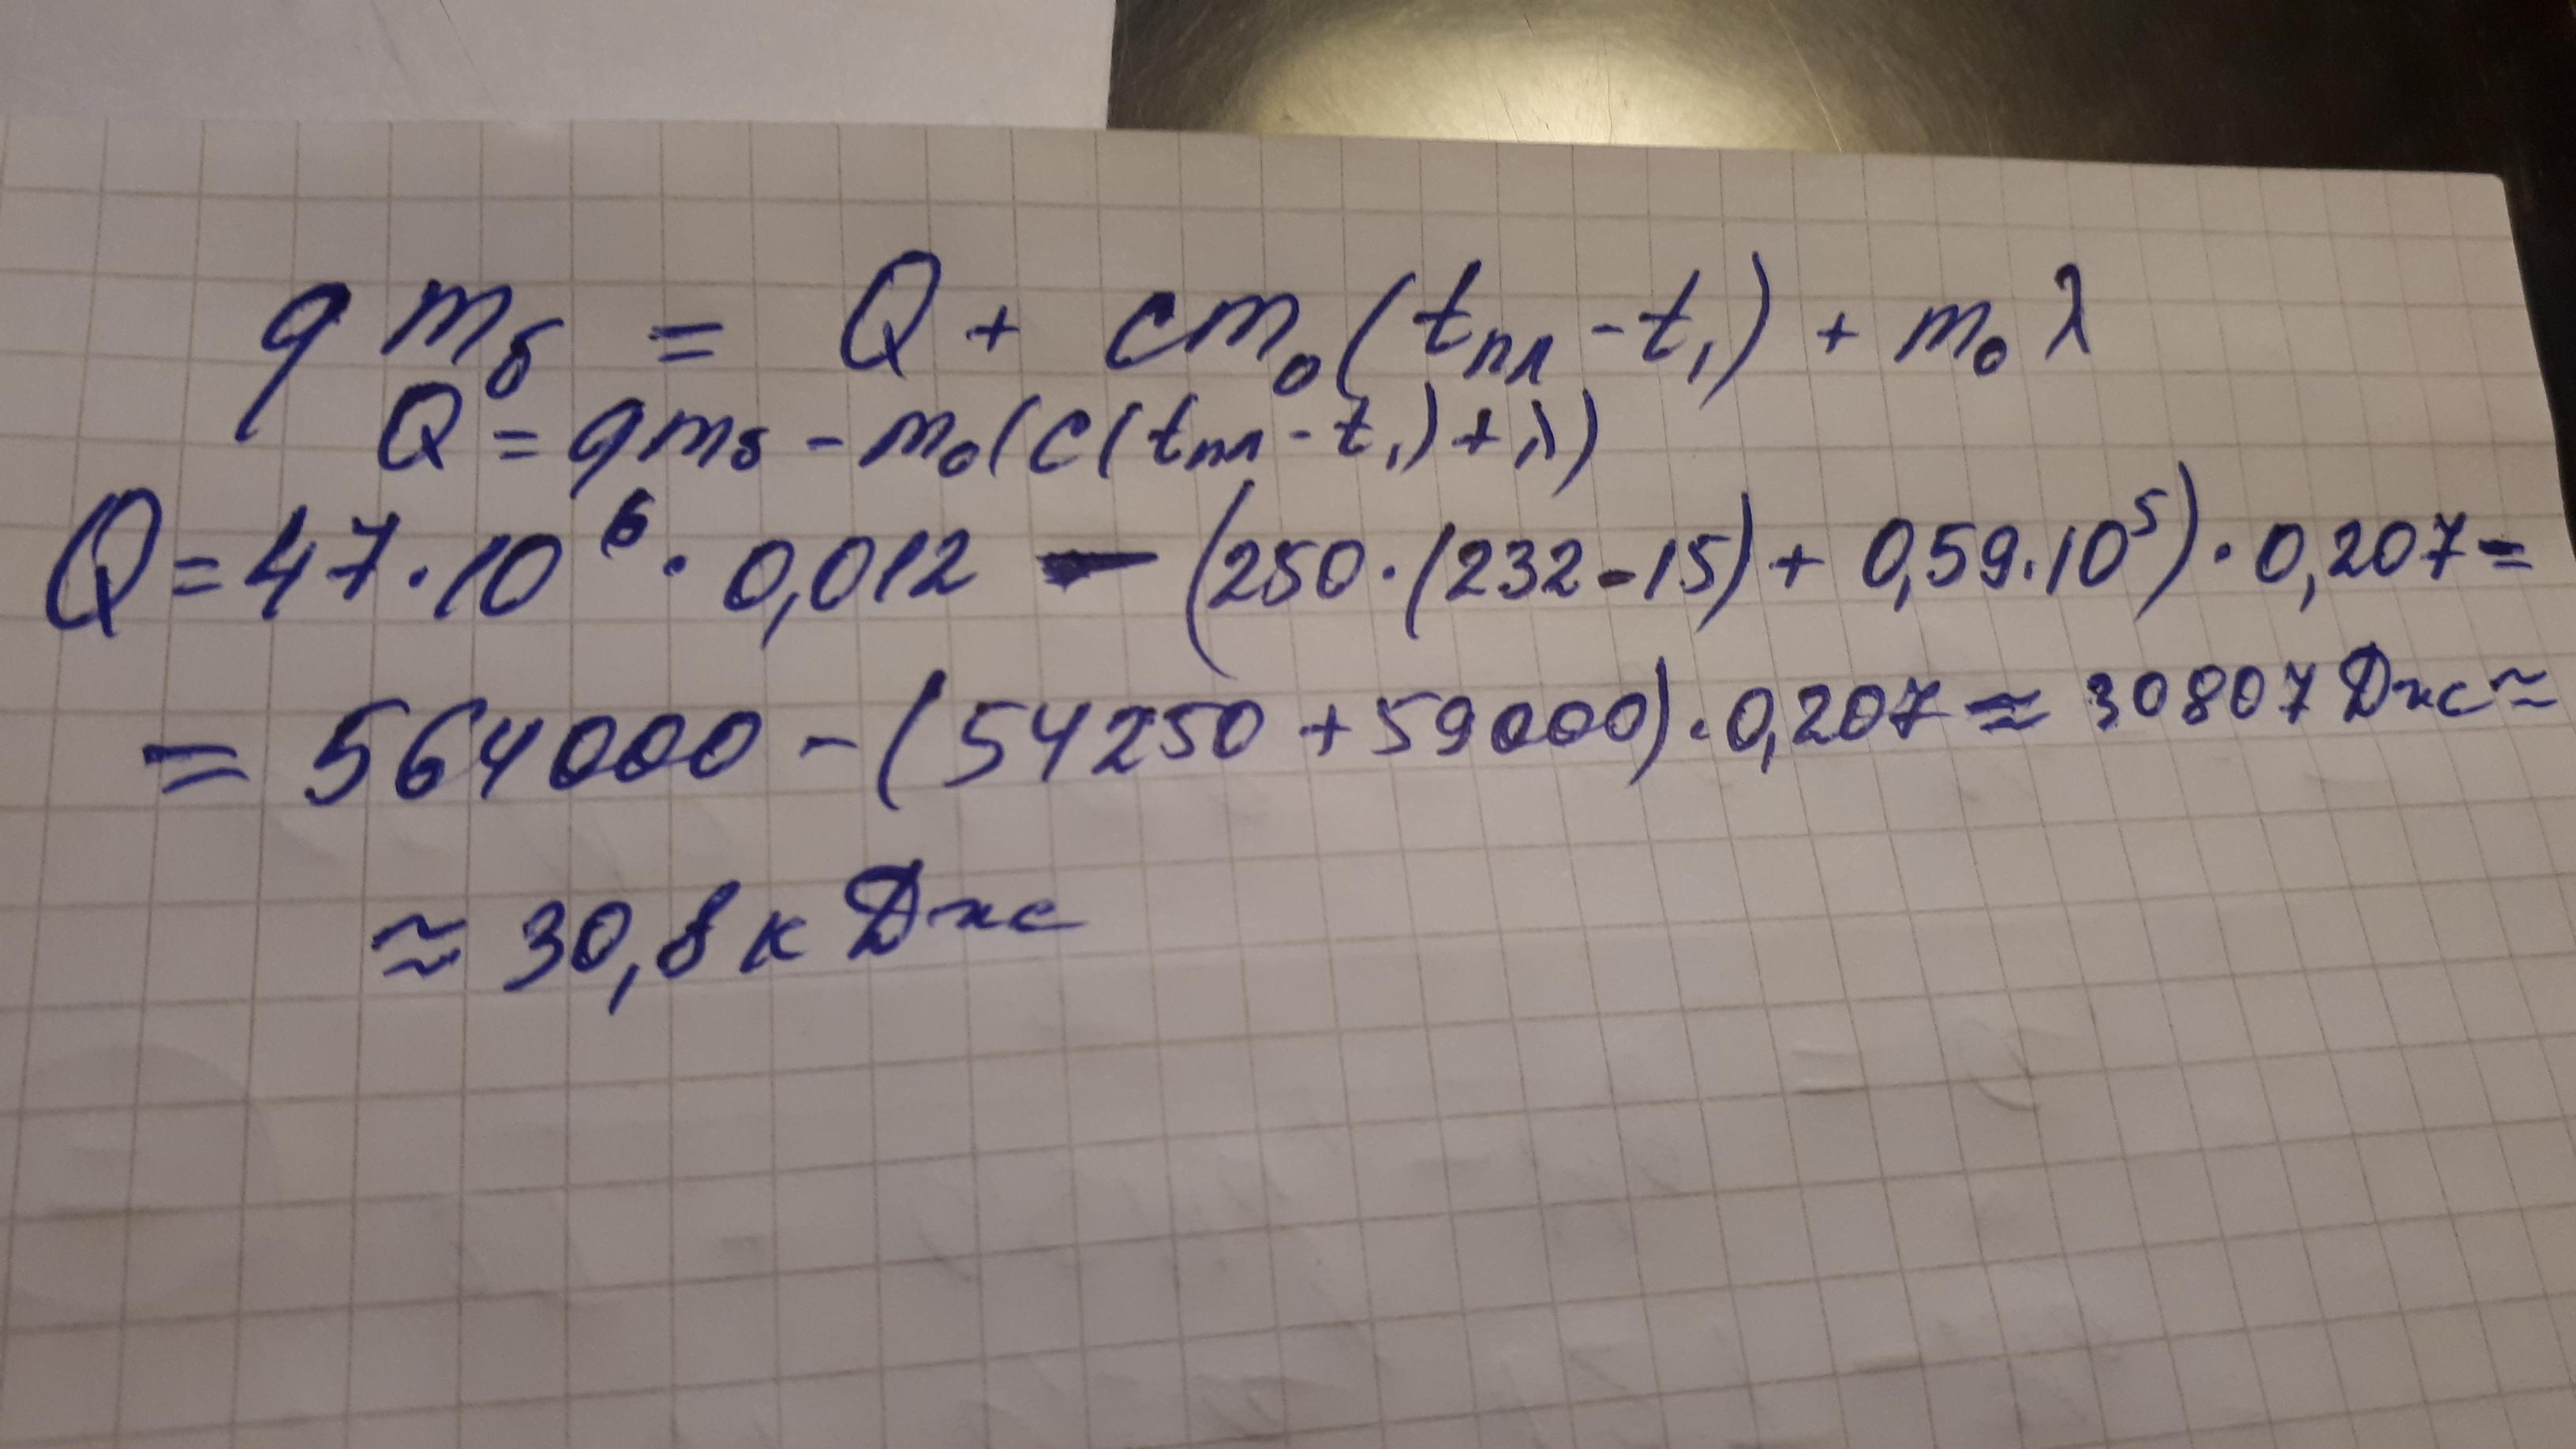 qmб = Q + cm₀(tпл - t₁) + m₀λ
Q = qmб - m₀(c(tпл - t₁) + λ)
Q = 47·10⁶·0,012 - (250·(232-15) + 0,59·10⁵)·0,207 =
= 564000 - (54250 + 59000)·0,207 ≈ 30807 Дж ≈
≈ 30,8 кДж